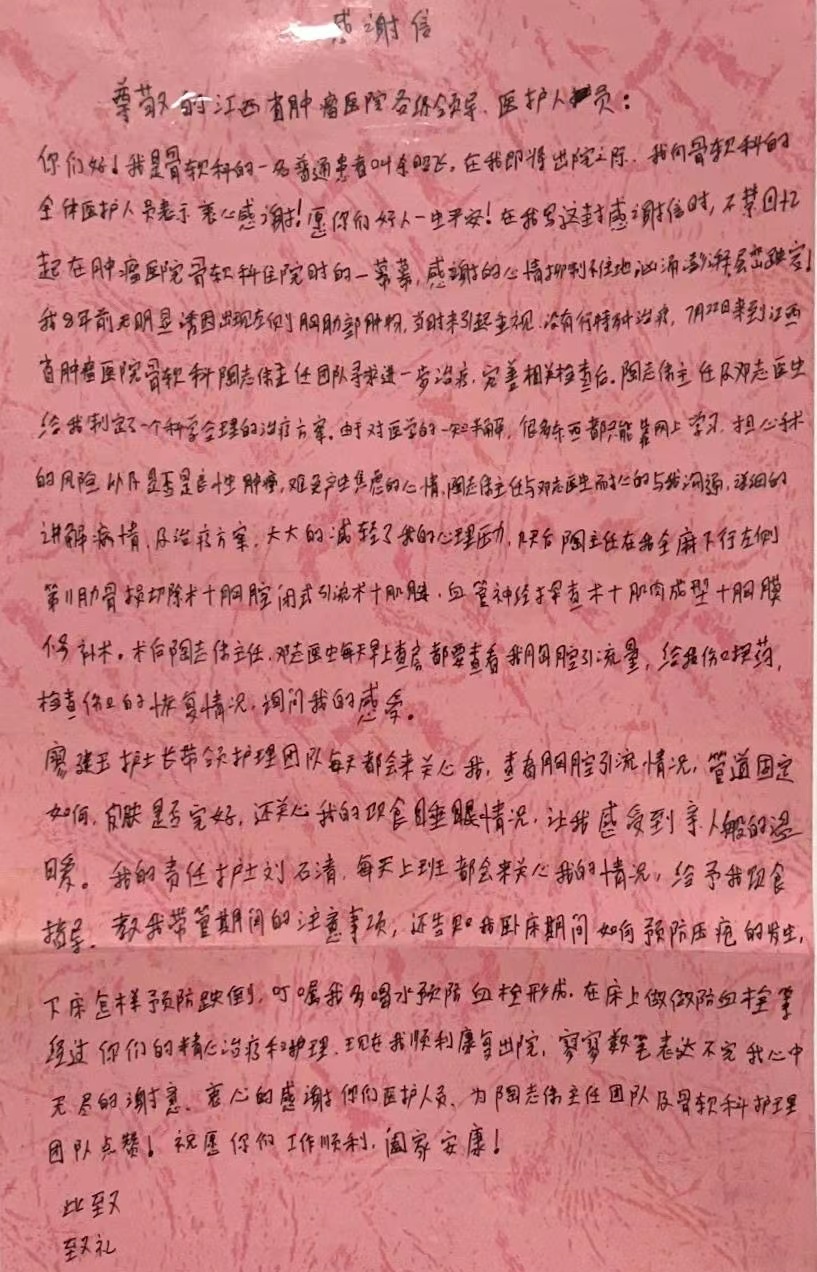 感谢信
尊敬的江西省肿瘤医院各级领导、医护人员：
你们好！我是骨软科的一名普通患者叫余昭飞，在我即将出院之际，我向骨软科的
全体医护人员表示衷心感谢！愿你们好人一生平安！在我写这封感谢信时，不禁回忆
起在肿瘤医院骨软科住院时的一幕幕，感谢的心情抑制不住地汹涌澎湃
我8年前无明显诱因出现左侧胸肋部肿物，当时未引起重视，没有行特殊治疗，7月22日来到江西
省肿瘤医院骨软科陶志伟主任团队寻求进一步治疗，完善相关检查后。陶志伟主任及邓志医生
给我制定了一个科学合理的治疗方案。由于对医学的一知半解，很多东西都只能靠网上学习，担心手术
的风险以及是否是良性肿瘤，难免产生焦虑的心情，陶志伟主任与邓志医生耐心的与我沟通，详细的
讲解病情，及治疗方案，大大的减轻了我的心理压力，尔后陶主任在我全麻下行左侧
第11肋骨损切除术+胸腔闭式引流术+肌腱、血管神经探查术+肌肉成型+胸膜
修补术。术后陶志伟主任、邓志医生每天早上查房都要查看我胸腔引流量，给我伤口换药，
检查伤口的恢复情况，询问我的感受。
廖建玉护士长带领护理团队每天都会来关心我，查看胸腔引流情况，管道固定
如何，皮肤是否完好，还关心我的饮食睡眠情况，让我感受到亲人般的温
暖。我的责任护士刘石清，每天上班都会来关心我的情况，给予我饮食
指导，教我带管期间的注意事项，还告知我卧床期间如何预防压疮的发生，
下床怎样预防跌倒，叮嘱我多喝水预防血栓形成，在床上做做防血栓操
经过你们的精心治疗和护理，现在我顺利康复出院，寥寥数笔表达不完我心中
无尽的谢意，衷心的感谢你们医护人员，为陶志伟主任团队及骨软科护理
团队点赞！祝愿你们工作顺利，阖家安康！
此致
致礼